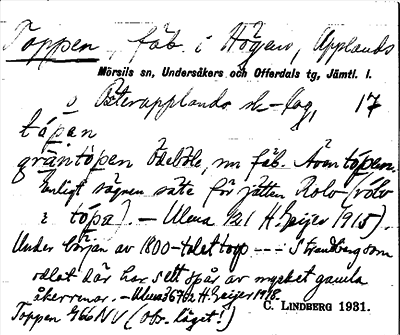 Toppen, fäb. i Högen, Applands
Mörsils sn, Undersåkers och Offerdals tg, Jämtl. l.
Österapplands sk-lag, 17
tópän
gräntópen Ödeböle, nu fäb. Åvan tópen.
Enligt sägnen säte för jätten Rolv (rólv
i tópa). – Ulma 121 H. Geijer 1915).
Under början av 1800-talet torp --- Strandberg som
odlat där har sett spår av mycket gamla
åkerrenar. – Ulma 36762 H. Geijer 1918.
C. LINDBERG 1931.
Toppen 466 NV (Obs. läget!)